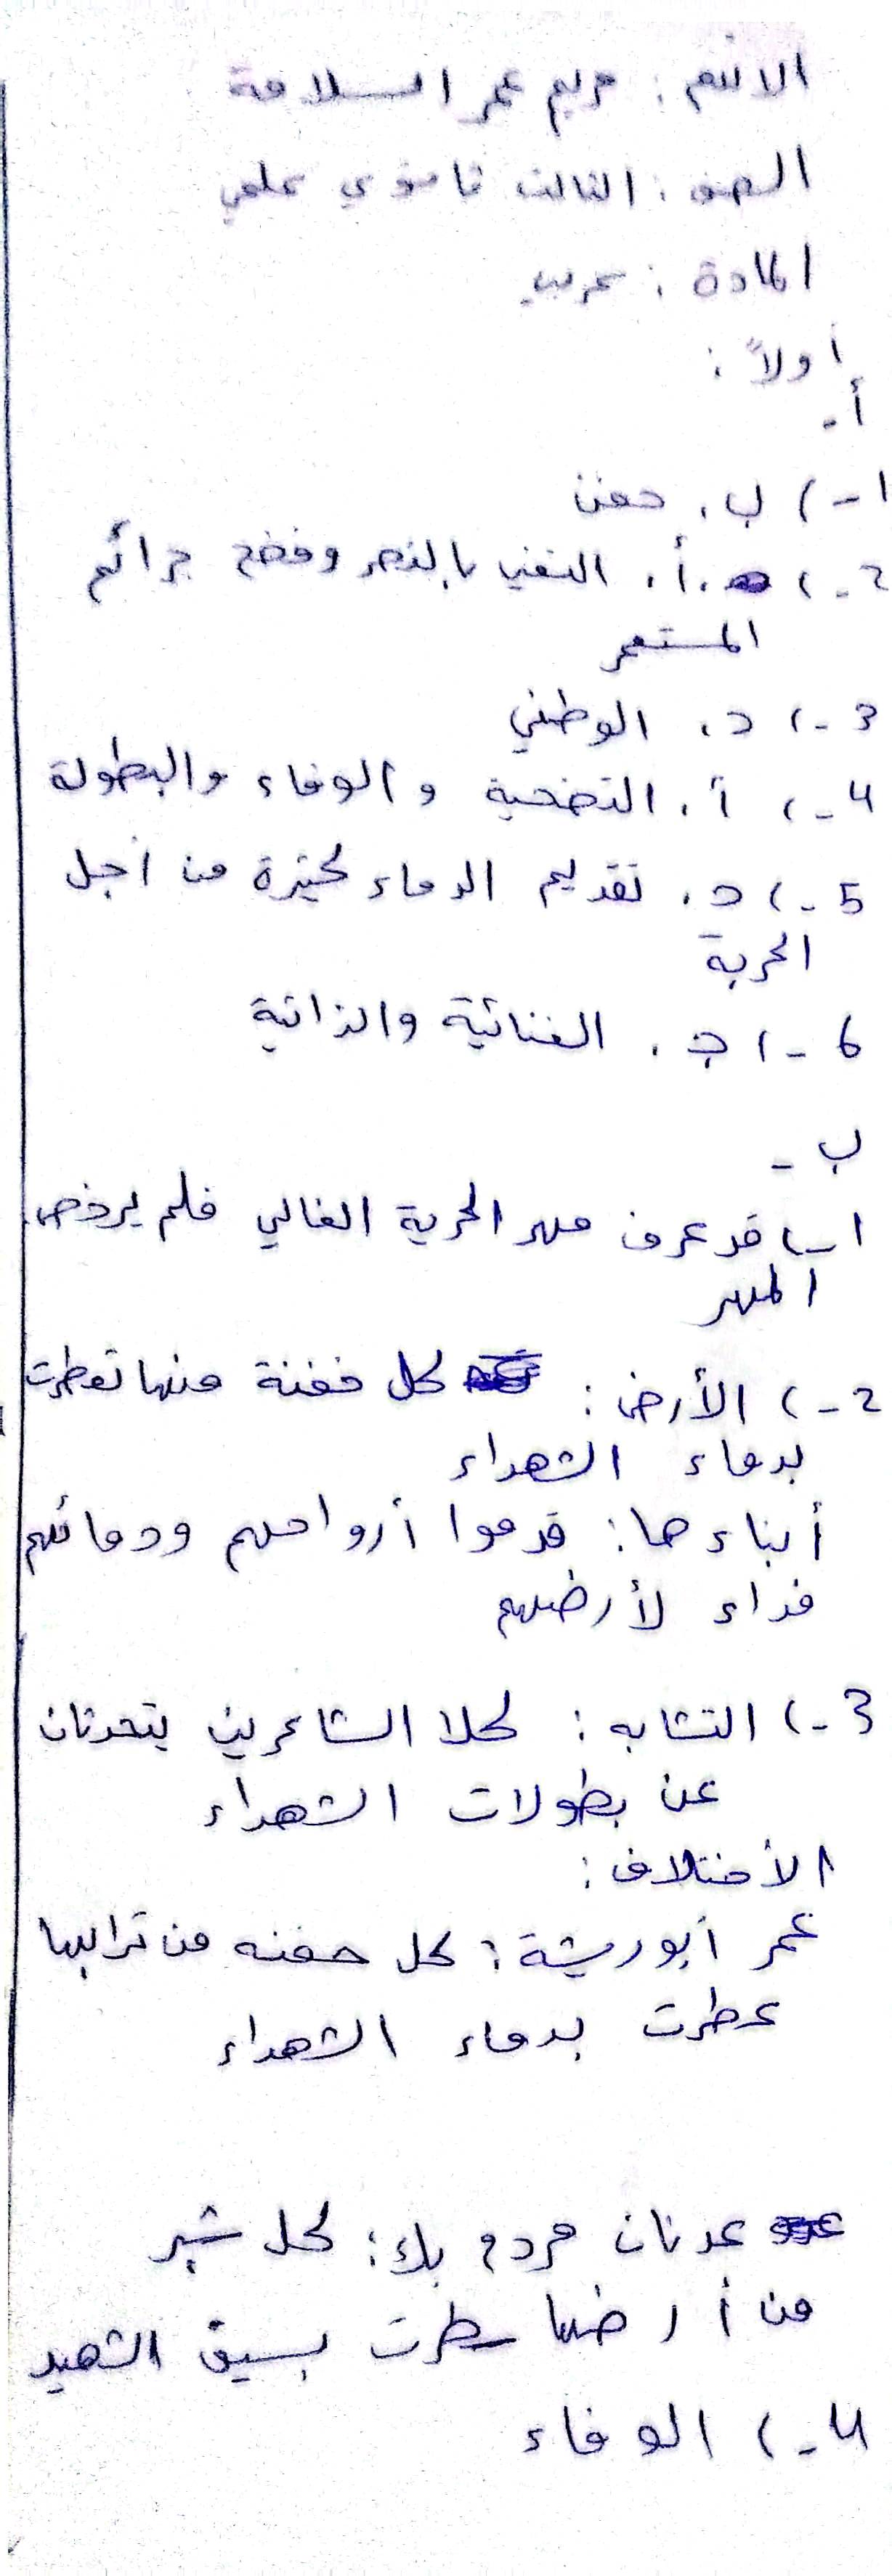 الاسم : مريم عمر السلامة
الصف : الثالث ثانوي علمي
المادة : عربي
أولاً :
أ -
1 -) ب . حفن
2 -) أ . التغني بالنصر وفضح جرائم
المستعمر
3 -) د . الوطني
4 -) أ . التضحية والوفاء والبطولة
5 -) د . تقديم الدماء كثيرة من أجل
الحرية
6 -) ج . الغنائية والذاتية
ب -
1 -) قد عرف مهر الحرية الغالي فلم يرخص
المهر
2 -) الأرض : كل حفنة منها تعطرت
بدماء الشهداء
أبناءها : قدموا أرواحهم ودمائهم
فداء لأرضهم
3 -) التشابه : كلا الشاعرين يتحدثان
عن بطولات الشهداء
الأختلاف :
عمر أبو ريشة : كل حفنه من ترابها
عطرت بدماء الشهداء
عدنان مردم بك : كل شبر
من أرضها سطرت بسيف الشهيد
4 -) الوفاء